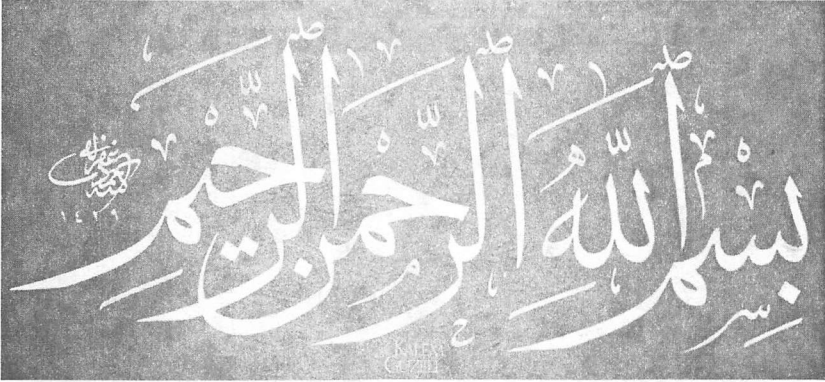 بِسْمِ اللّٰهِ الرَّحْمٰنِ الرَّحِيمِ
١٤٢٩
KALEM
GÜZELİ